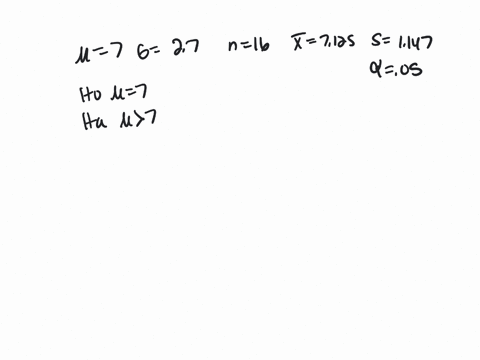 μ=7 σ= 2.7 n=16 x̄=7.125 s=1.147
α=.05
Ho μ=7
Ha μ>7